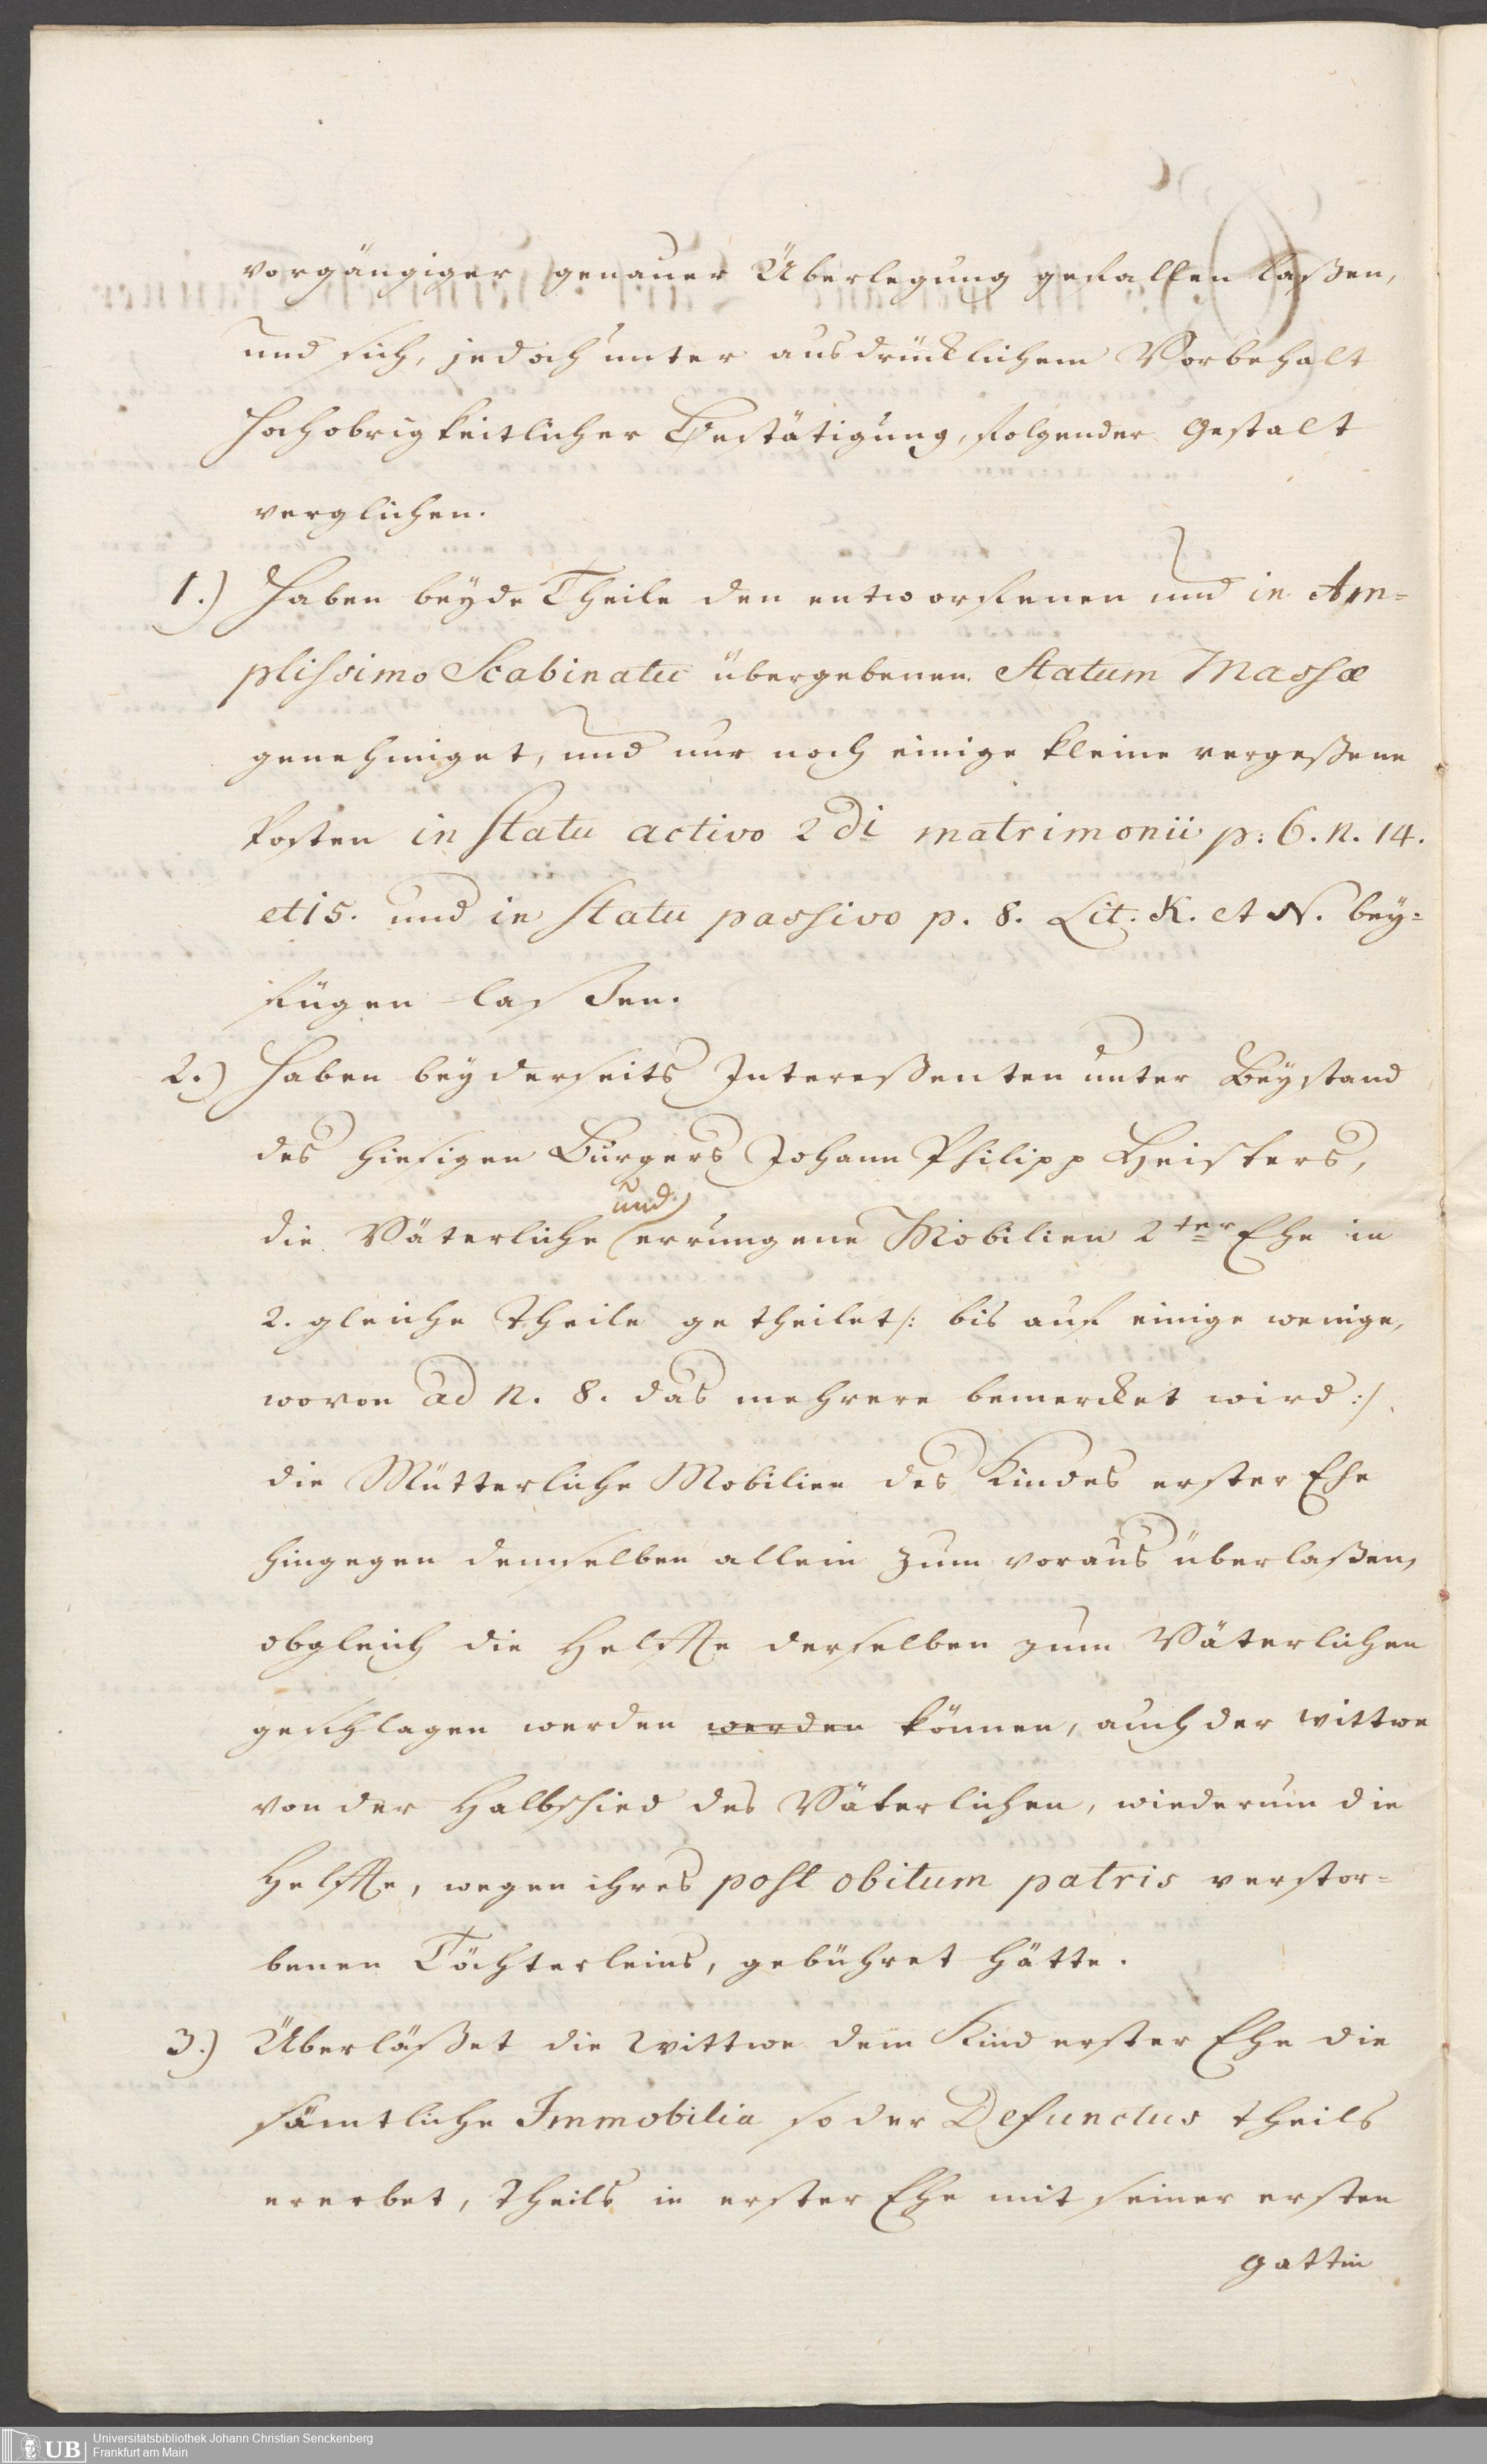 vorgängiger genauer Überlegung gefallen laßen,
und sich, jedoch unter ausdrücklichem Vorbehalt
Hochobrigkeitlicher Bestätigung, folgender Gestalt
verglichen.
1.) Haben beyde Theile den entworfenen und in Am=
plissimo Scabinatu übergebenen Statum Massæ
genehmiget, und nur noch einige kleine vergeßene
Posten in Statu activo 2di matrimonii p: 6. n. 14.
et 15. und in Statu passivo p. 8. Lit. K. et N. bey=
fügen lassen.
2.) Haben beyderseits Intereßenten unter Beystand
des hiesigen Bürgers Johann Philipp Heisters,
und
die Väterliche errungene Mobilien 2ter Ehe in
2. gleiche Theile getheilet /: bis auf einige wenige,
wovon ad n. 8. das mehrere bemercket wird :/
die Mütterliche Mobilien des Kindes erster Ehe
hingegen demselben allein zum voraus überlaßen,
obgleich die Helffte derselben zum Väterlichen
geschlagen werden werden können, auch der Wittwe
von der Halbschied des Väterlichen, wiederum die
Helffte, wegen ihres post obitum patris verstor=
benen Töchterleins, gebühret hätte.
3.) Überläßet die Wittwe dem Kind erster Ehe die
sämtliche Immobilia so der Defunctus theils
ererbet, theils in erster Ehe mit seiner ersten
Gattin
UB Universitätsbibliothek Johann Christian Senckenberg
Frankfurt am Main